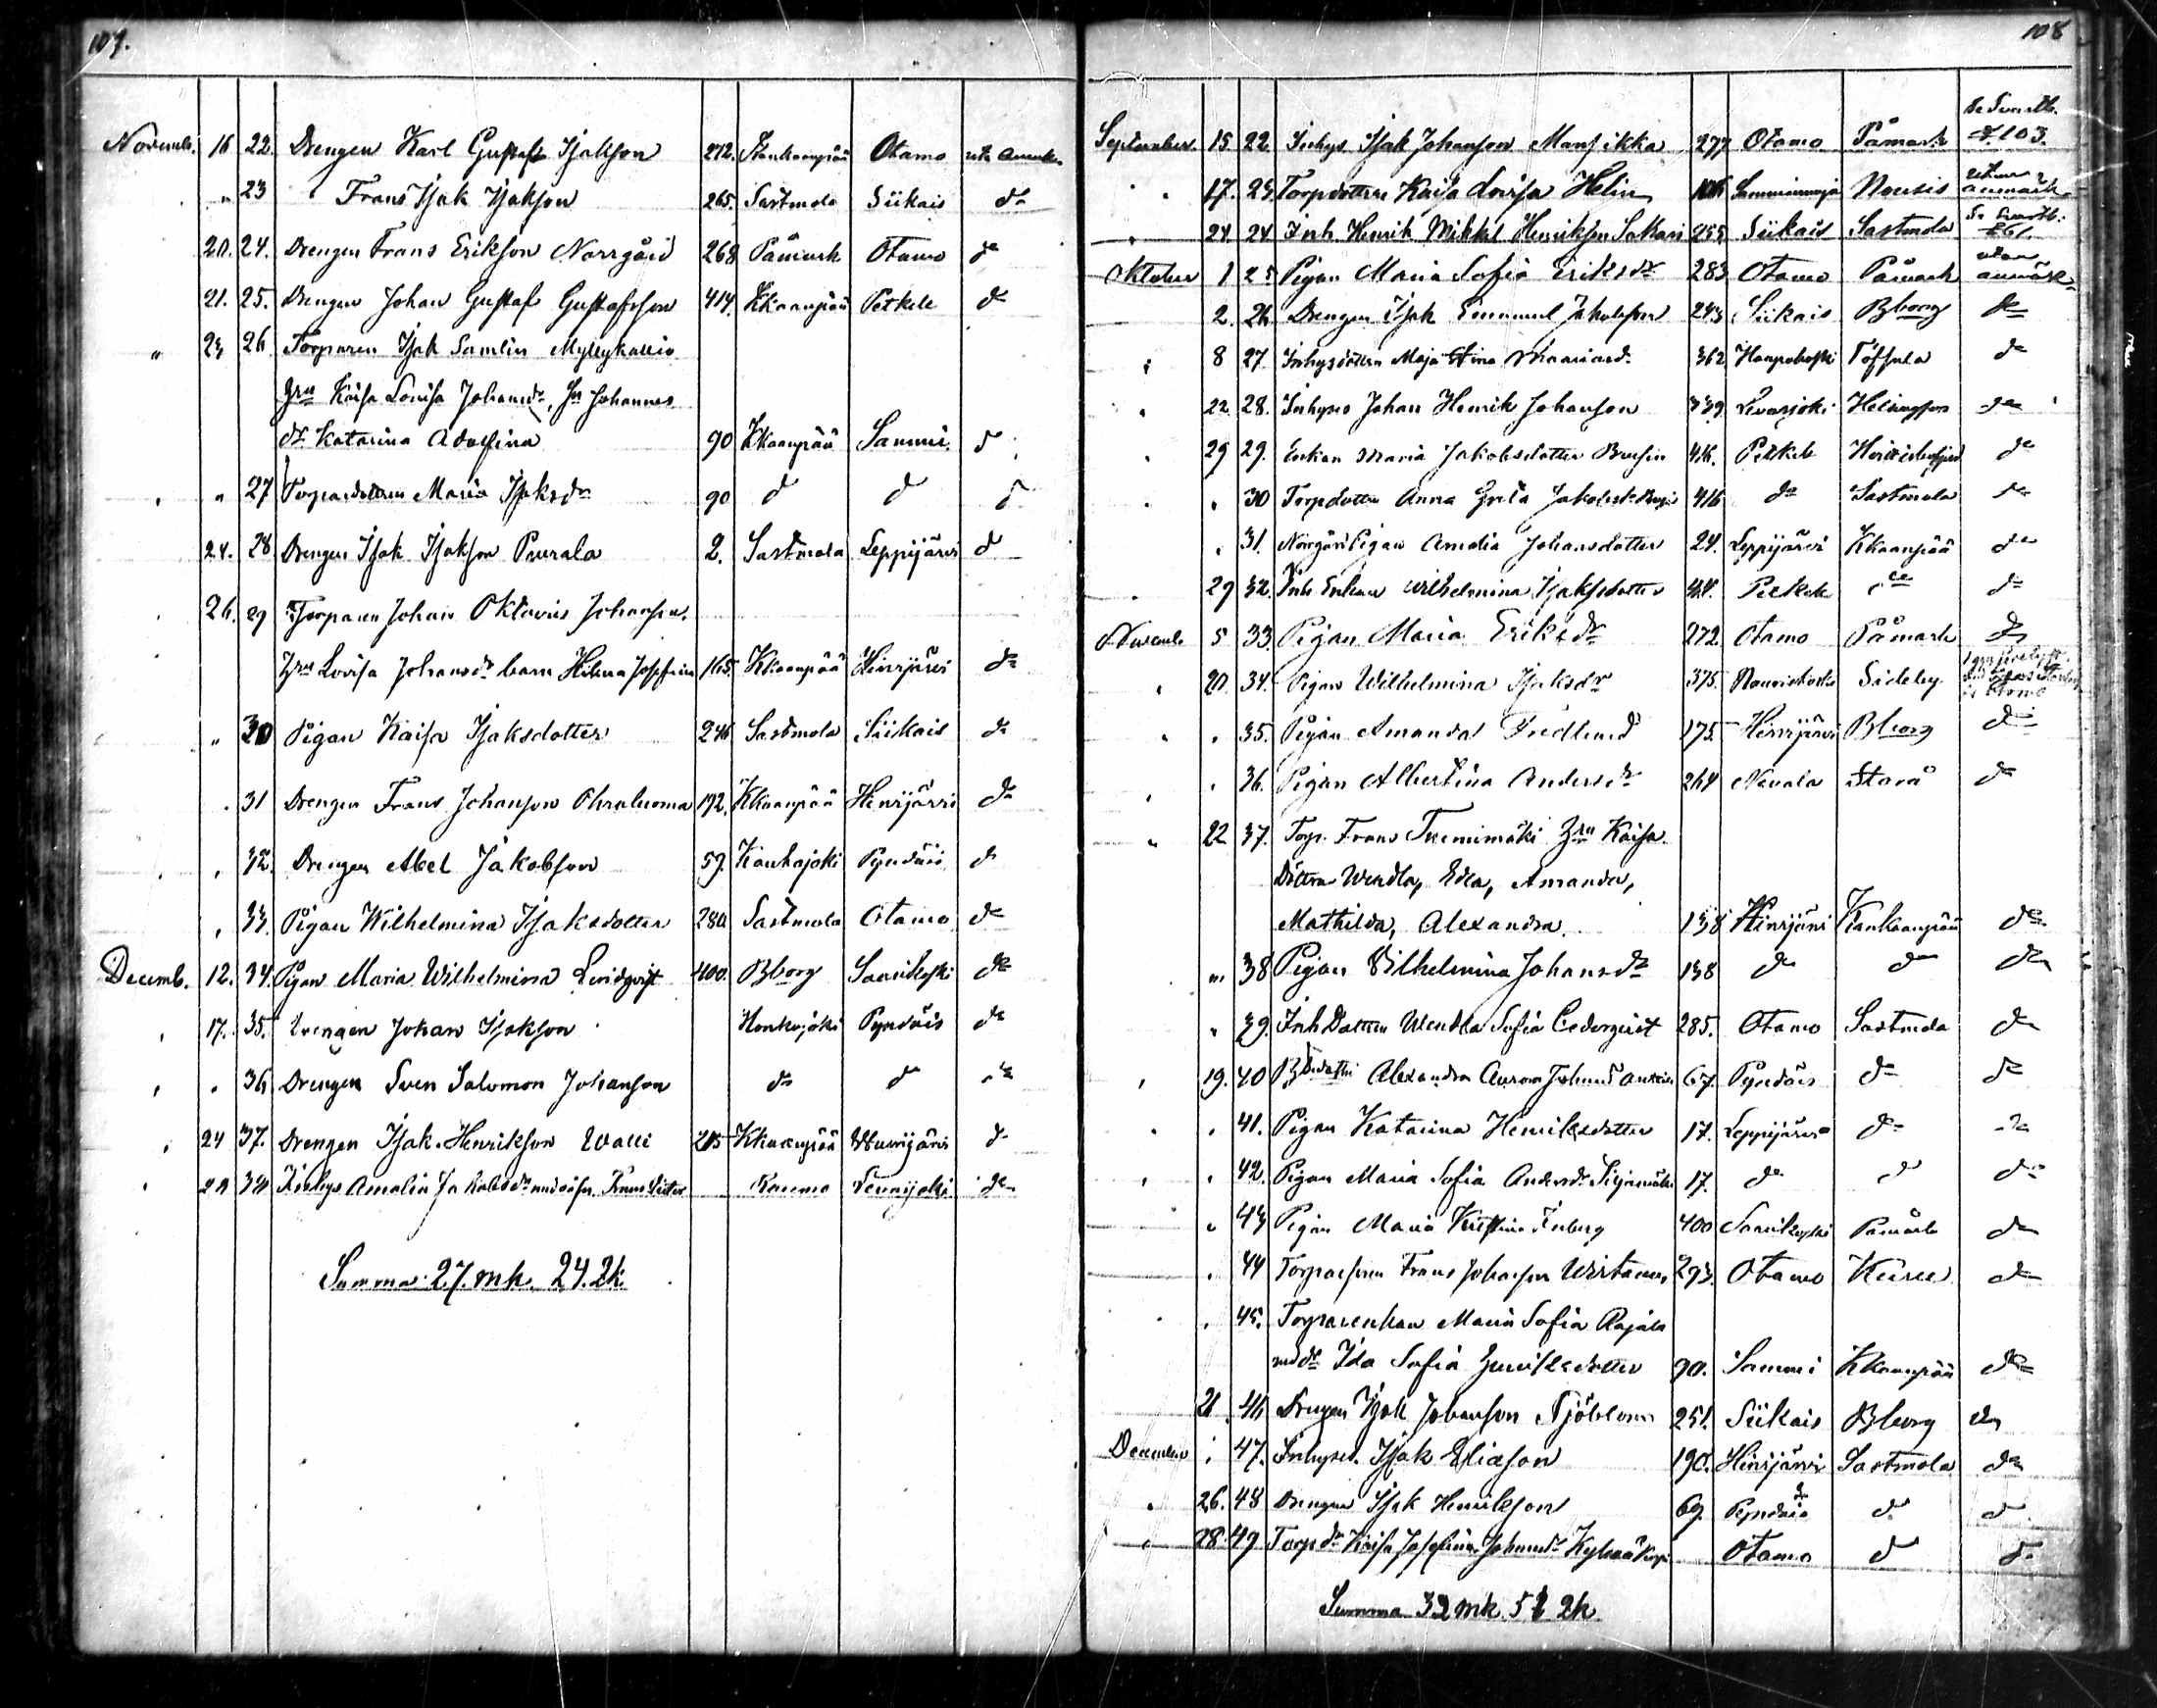 107.
Novemb. 16 22. Drengen Karl Gustaf Isakson 272. Kankaanpää Otamo utan anmärk.
" 23 " Frans Isak Isakson 265. Sastmola Siikais do
20. 24. Drengen Frans Erikson Norrgård 268 Påmark Otamo do
21. 25. Drengen Johan Gustaf Gustafsson 414. Kkaanpää Petkele do
" 23 26 Torparen Isak Samlin Myllykallio
Hru Kaisa Lovisa Johansdr, Sn Johannes
dr Katarina Adolfina 90 Kkaanpää Sammi. do
" " 27 Torparedottren Maria Isaksdr 90 do do do
24. 28 Drengen Isak Isakson Puurala 2. Sastmola Leppijärvi do
26. 29 Torparen Johan Oktavius Johanson.
Hru Lovisa Johansdr barn Hilma Josefina 165. Kkaanpää Hirvijärvi do
" 30 Pigan Kaisa Isaksdotter 246 Sastmola Siikais do
. 31 Drengen Frans Johanson Ohraluoma 192. Kkaanpää Hirvijärvi do
. . 32. Drengen Abel Jakobson 59. Kauhajoki Pyndäis do
. 33. Pigan Wilhelmina Isaksdotter 280 Sastmola Otamo do
Decemb. 12. 34. Pigan Maria Wilhelmina Lindqvist 400. Bborg Saarikoski do
. 17. 35. Drengen Johan Isakson Honkajoki Pyndäis do
. . 36 Drengen Sven Salomon Johanson do do do
. 24 37. Drengen Isak Henrikson Walli 215 Kkaanpää Hirvijärvi do
38 Inhys Amalia Raumo Leväsjoki do
Summa: 27. mk. 24. 2k.
108
September 15 22. Inhys. Isak Johanson Mansikka 277 Otamo Påmark Se Svartb. 103.
. 17. 23. Torpdottren Kaisa Lovisa Helin 106 Nousis utan anmärk.
. 24 24. Inh. Henrik Mikkel Henrikson Sakari 255 Siikais Sastmola Se Svartb. 261.
Oktober 1 25 Pigan Maria Sofia Eriksdr 283 Otamo Påmark utan anmärk.
2. 26 Drengen Isak Emanuel Jakobsson 243 Siikais Bborg do
. 8 27. Inhysdottren Maja Stina 362 Haapakoski Töfsala do
. 22 28. Inhyses Johan Henrik Johanson 339 Levasjoki Helsingfors do
. 29 29. Enkan Maria Jakobsdotter Brusin 416. Petkele do
. . 30 Torpdottren Anna Greta Jakobsdr 416 do Sastmola do
. 31. Pigan Amalia Johansdotter 24. Leppijärvi Kkaanpää do
. 29 32. Inh. Enkan Wilhelmina Isaksdotter 414. Petkele do do
Novemb. 5 33. Pigan Maria Eriksdr 272. Otamo Påmark do
. 20. 34. Pigan Wilhelmina Isaksdr 375. Sideby
. . 35. Pigan Amanda Fredlund 175. Hirvijärvi Bborg do
. . 36. Pigan Albertina Andersdr 264 Nevala Starå do
" 22 37. Torp. Frans Tuomimäki Hru Kaisa.
Döttrar Wendla, Edla, Amanda,
Mathilda, Alexandra. 138 Hirvijärvi Kankaanpää do
" 38 Pigan Wilhelmina Johansdr 138 do do do
" 39. Inh. Dottren Wendla Sofia Cederqvist 285. Otamo Sastmola do
. 19. 40 Alexandra Aurora Johansdr 67. Pyndäis do do
. . 41. Pigan Katarina Henriksdotter 17. Leppijärvi do do
. . 42. Pigan Maria Sofia Andersdr 17. do do do
" 43 Pigan Maria Kristina Enberg 400 Saarikoski Påmark do
. 44 Torparsonen Frans Johanson Wirtanen 293. Otamo Kuru do
. . 45. Torparenkan Maria Sofia Rajala
med dr Ida Sofia 90. Sammi Kkaanpää do
21 46 Drengen Isak Johanson Sjöblom 251. Siikais Bborg do
December . 47. Inhyses. Isak Eliason 190. Hirvijärvi Sastmola do
. 26. 48 Drengen Isak Henrikson 69. Pyndäis do do
. 28. 49 Torp dr Kaisa Josefina Johansdr Otamo do do
Summa 32 mk 5 2k